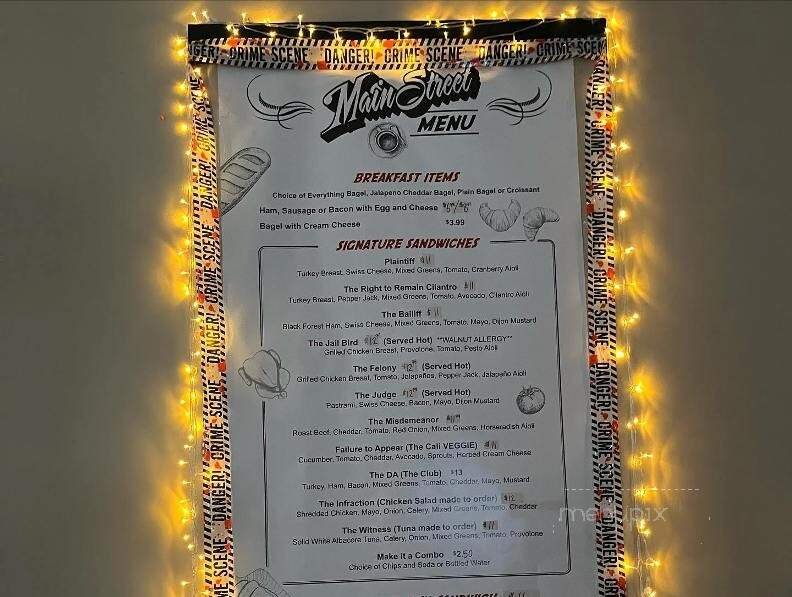 DANGER! CRIME SCENE DANGER! CRIME SCENE DANGER! CRIME SCENE
Main Street
MENU
BREAKFAST ITEMS
Choice of Everything Bagel, Jalapeno Cheddar Bagel, Plain Bagel or Croissant
Ham, Sausage or Bacon with Egg and Cheese
Bagel with Cream Cheese $3.99
SIGNATURE SANDWICHES
Plaintiff $11
Turkey Breast, Swiss Cheese, Mixed Greens, Tomato, Cranberry Aioli
The Right to Remain Cilantro $11
Turkey Breast, Pepper Jack, Mixed Greens, Tomato, Avocado, Cilantro Aioli
The Bailiff $11
Black Forest Ham, Swiss Cheese, Mixed Greens, Tomato, Mayo, Dijon Mustard
The Jail Bird (Served Hot) **WALNUT ALLERGY**
Grilled Chicken Breast, Provolone, Tomato, Pesto Aioli
The Felony (Served Hot)
Grilled Chicken Breast, Tomato, Jalapeños, Pepper Jack, Jalapeño Aioli
The Judge (Served Hot)
Pastrami, Swiss Cheese, Bacon, Mayo, Dijon Mustard
The Misdemeanor
Roast Beef, Cheddar, Tomato, Red Onion, Mixed Greens, Horseradish Aioli
Failure to Appear (The Cali VEGGIE) $11
Cucumber, Tomato, Cheddar, Avocado, Sprouts, Herbed Cream Cheese
The DA (The Club) $13
Turkey, Ham, Bacon, Mixed Greens, Tomato, Cheddar, Mayo, Mustard
The Infraction (Chicken Salad made to order) $12
Shredded Chicken, Mayo, Onion, Celery, Mixed Greens, Tomato, Cheddar
The Witness (Tuna made to order) $11
Solid White Albacore Tuna, Celery, Onion, Mixed Greens, Tomato, Provolone
Make it a Combo $2.50
Choice of Chips and Soda or Bottled Water
SANDWICH
menupix